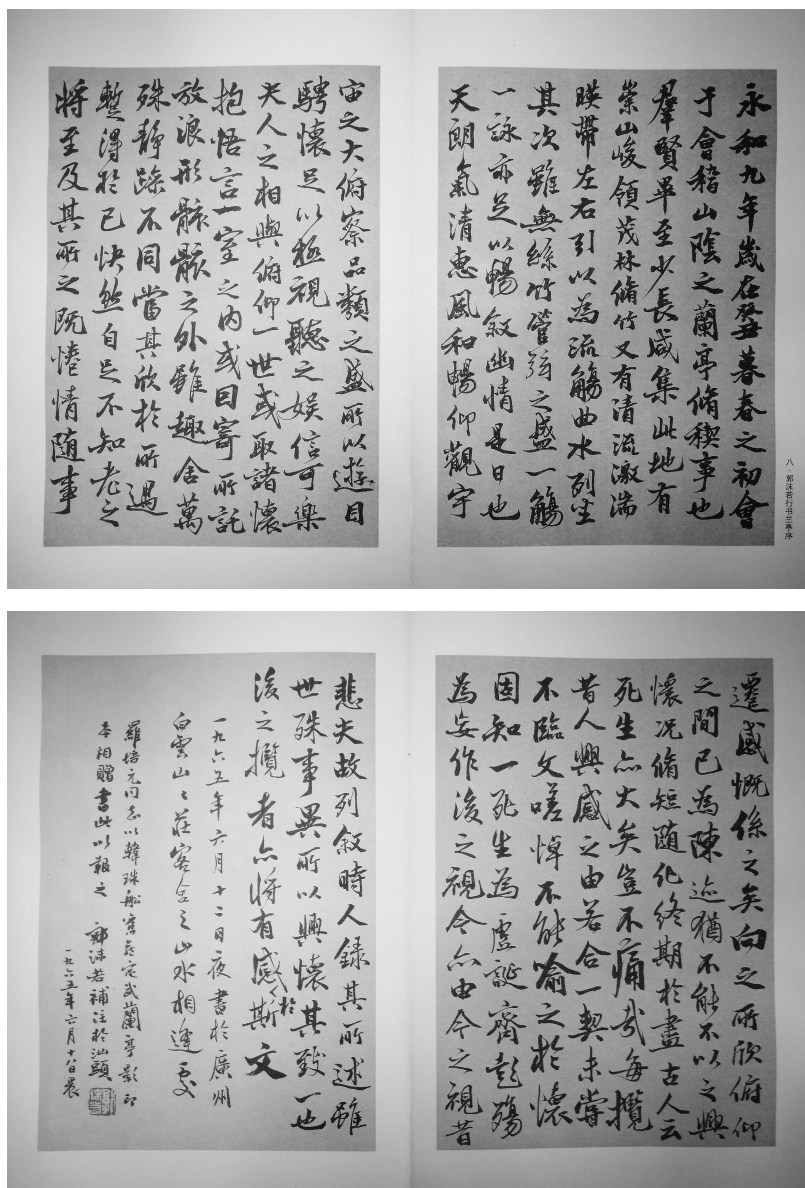 永和九年歲在癸丑暮春之初會
于會稽山陰之蘭亭脩稧事也
羣賢畢至少長咸集此地有
崇山峻領茂林脩竹又有清流激湍
暎帶左右引以為流觴曲水列坐
其次雖無絲竹管弦之盛一觴
一詠亦足以暢敘幽情是日也
天朗氣清惠風和暢仰觀宇
八·郭沫若行书兰亭序
宙之大俯察品類之盛所以遊目
騁懷足以極視聽之娛信可樂
夫人之相與俯仰一世或取諸懷
抱悟言一室之內或因寄所託
放浪形骸骸之外雖趣舍萬
殊静躁不同當其欣於所遇
暫得於己快然自足不知老之
將至及其所之既惓情隨事
遷感慨係之矣向之所欣俯仰
之間已為陳迹猶不能不以之興
懷况脩短隨化終期於盡古人云
死生亦大矣豈不痛哉每攬
昔人興感之由若合一契未嘗
不臨文嗟悼不能喻之於懷
固知一死生為虛誕齊彭殤
為妄作後之視今亦由今之視昔
悲夫故列敘時人錄其所述雖
世殊事異所以興懷其致一也
後之攬者亦將有感於斯文
一九六五年六月十二日夜書於廣州
白雲山山莊客舍之山水相逢處
羅培元同志以韓珠船舊藏定武蘭亭影印
本相贈書此以報之 郭沫若補注於汕頭
一九六五年六月十八日晨